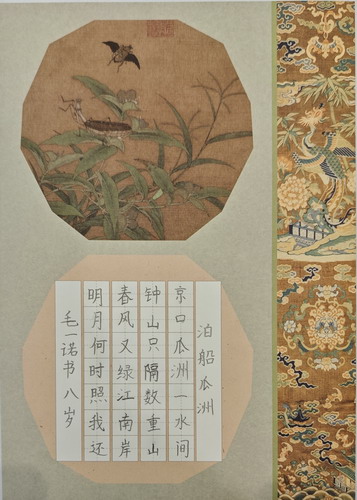 泊船瓜洲
京口瓜洲一水间
钟山只隔数重山
春风又绿江南岸
明月何时照我还
毛一诺书 八岁